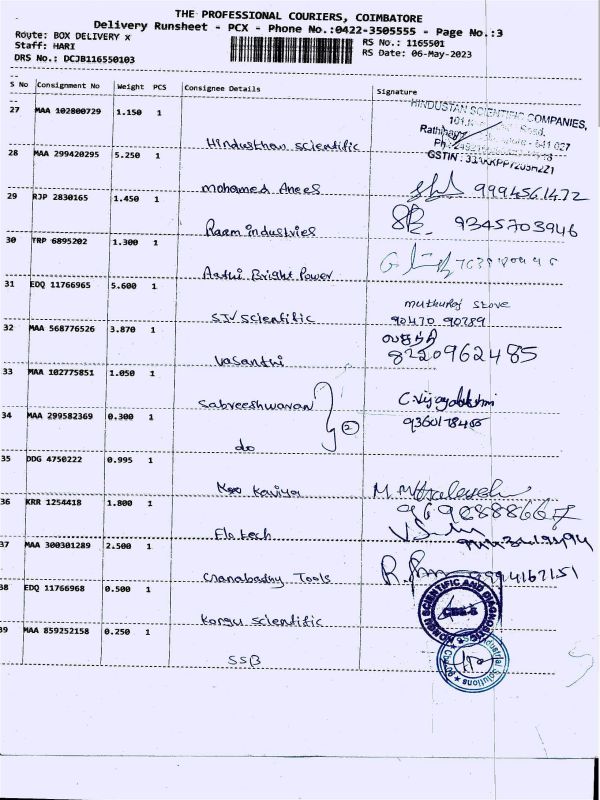 THE PROFESSIONAL COURIERS, COIMBATORE
Delivery Runsheet - PCX - Phone No.:0422-3505555 - Page No.:3
Route: BOX DELIVERY x
RS No.: 1165501
Staff: HARI
RS Date: 06-May-2023
DRS No.: DCJB116550103
S No Consignment No Weight PCS Consignee Details Signature
27 MAA 102800729 1.150 1
HINDUSTAN SCIENTIFIC COMPANIES,
Road,
641 027
Hindusthan scientific
28 MAA 299420295 5.250 1
GSTIN :
Mohamed Anees 9994561472
29 RJP 2830165 1.450 1
Raam industries 9345703946
30 TRP 6895202 1.300 1
Aathi Bright Power
31 EDQ 11766965 5.600 1
muthuraj stove
SJV scientific 90470 90289
32 MAA 568776526 3.870 1
வசந்தி
Vasanthi 8220962485
33 MAA 102775851 1.050 1
Sabreeshwaran C.Vijayalakshmi
34 MAA 299582369 0.300 1
2
do
35 DDG 4750222 0.995 1
Kaviya
36 KRR 1254418 1.800 1
37 MAA 300301289 2.500 1
Tools 9994167151
38 EDQ 11766968 0.500 1
SCIENTIFIC AND DIAGNOSTIC
Kongu scientific
39 MAA 859252158 0.250 1
SSB
Industrial Solutions